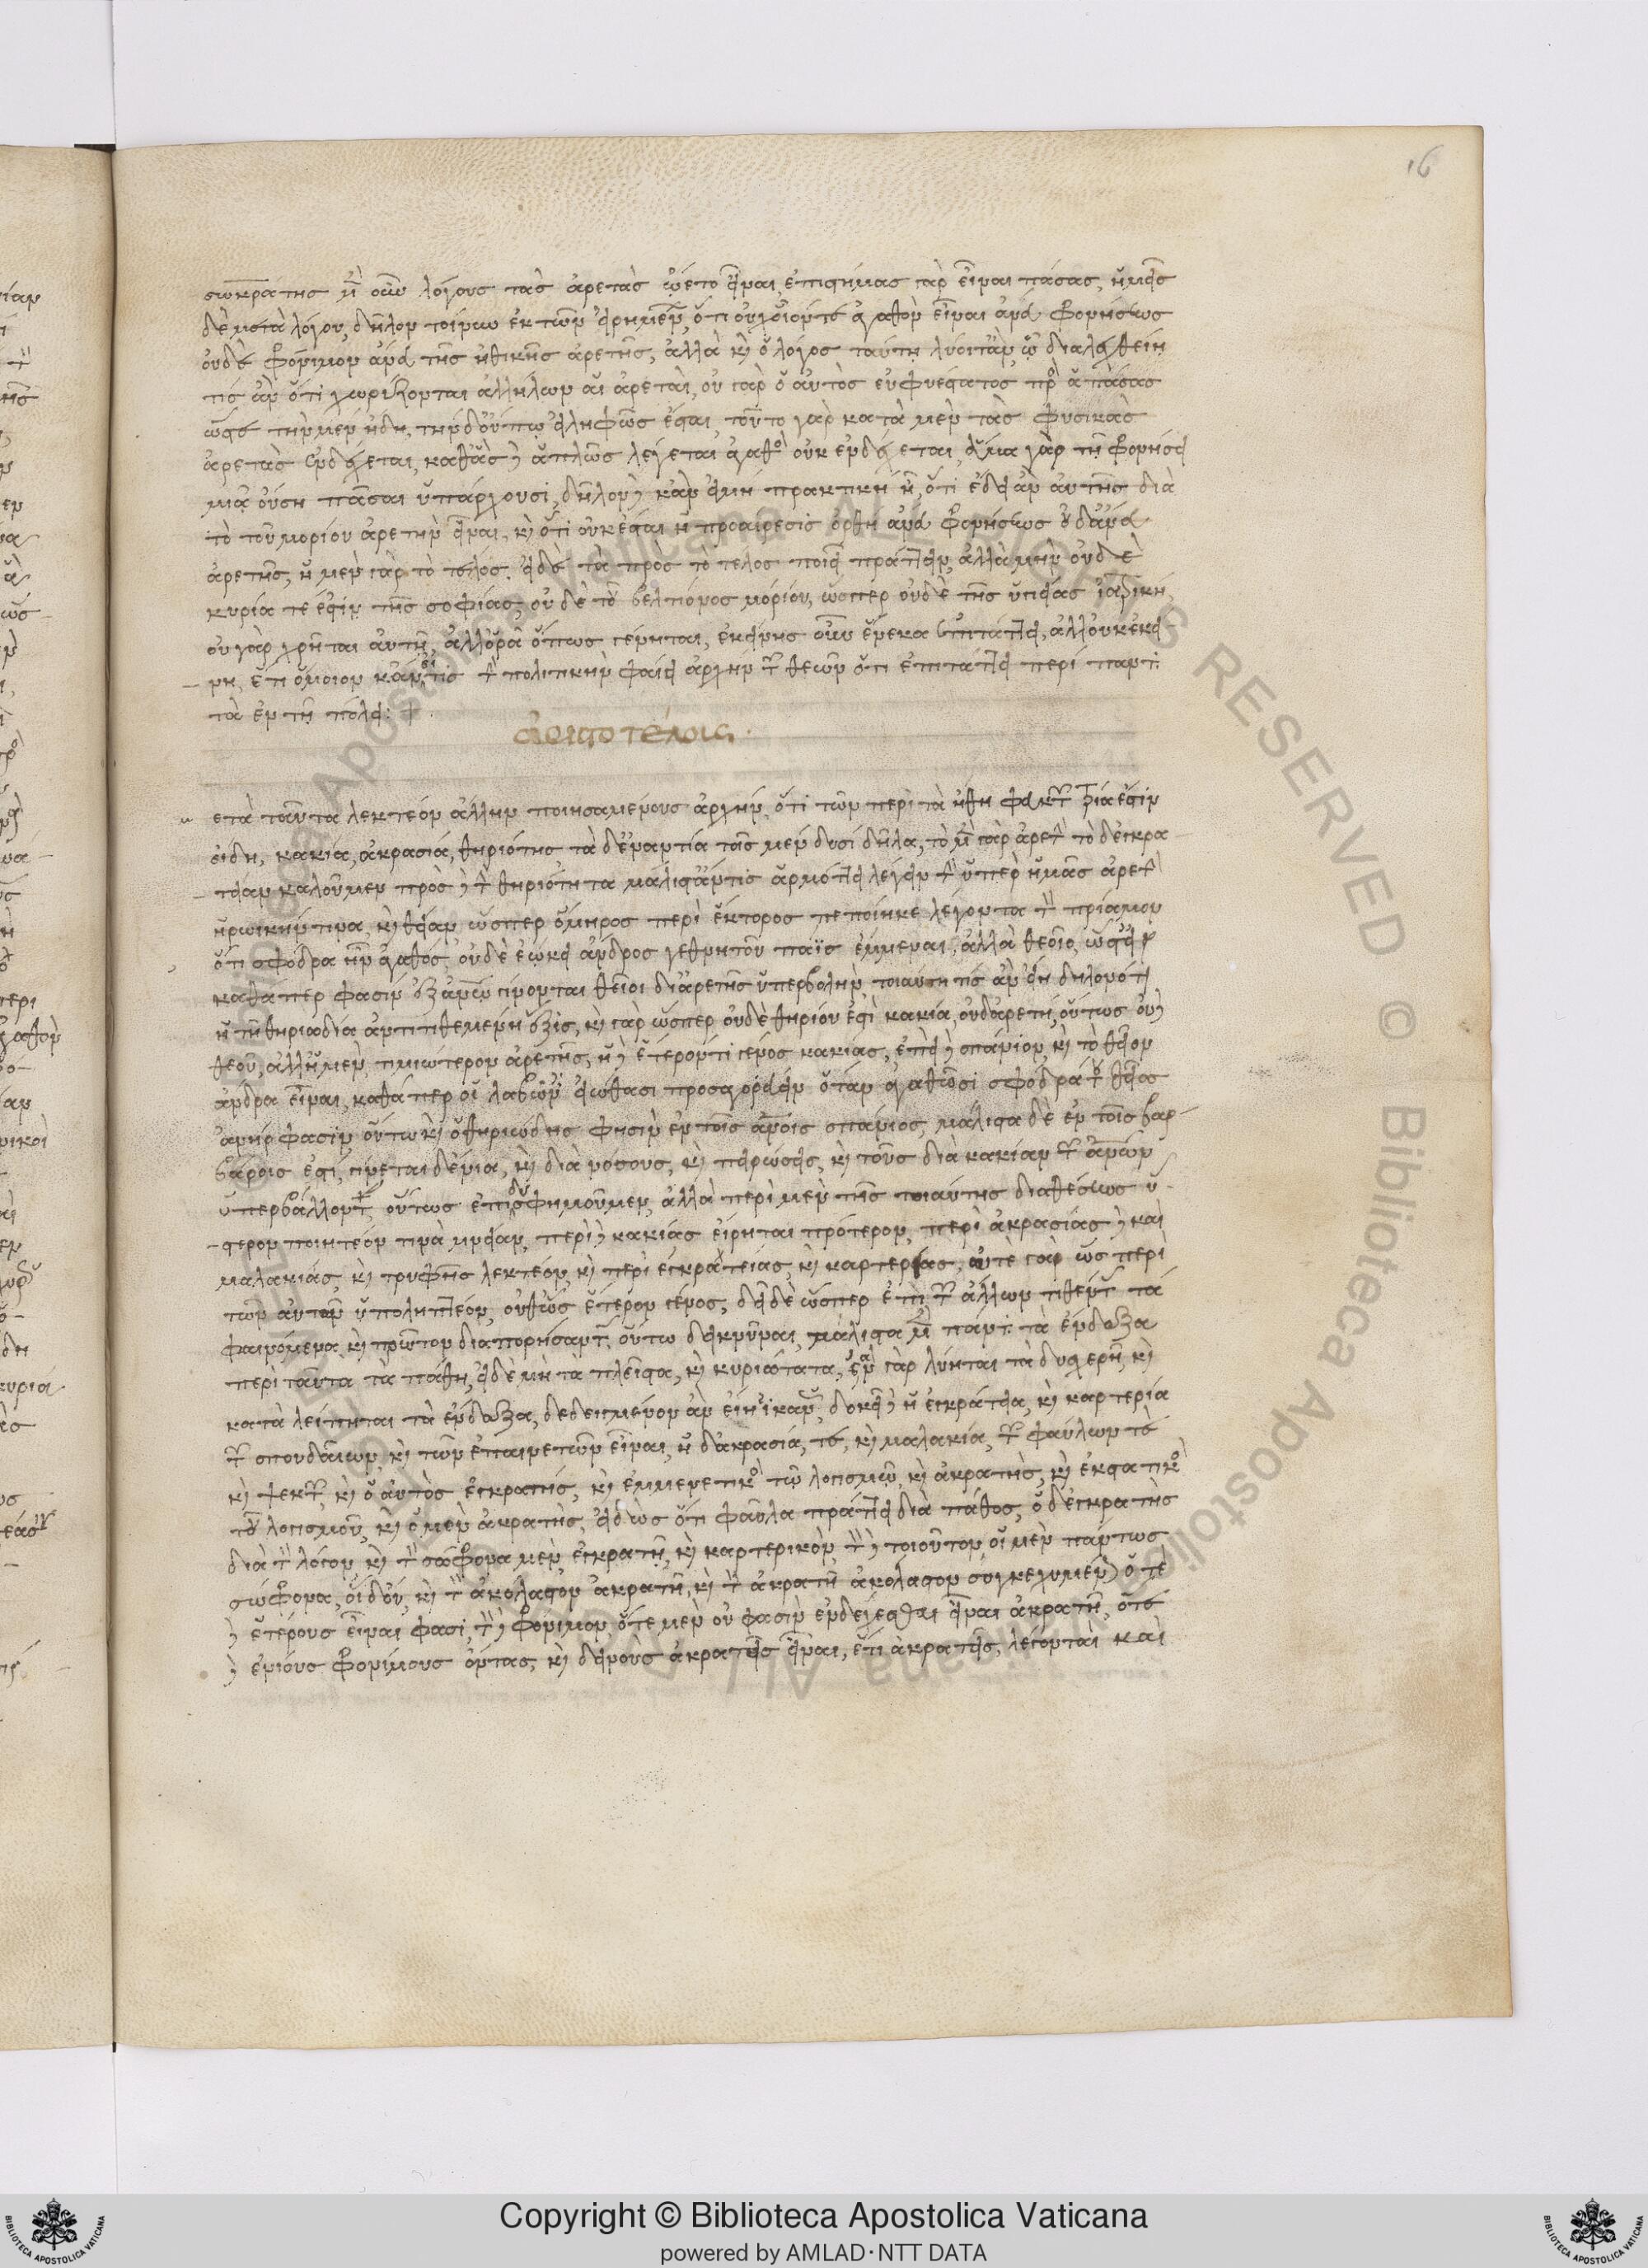 16
σωκράτης μὲν οὖν λόγους τὰς ἀρετὰς ᾤετο εἶναι, ἐπιστήμας γὰρ εἶναι πάσας, ἡμεῖς
δὲ μετὰ λόγου, δῆλον τοίνυν ἐκ τῶν εἰρημένων ὅτι οὐχ οἷόν τε ἀγαθὸν εἶναι ἄνευ φρονήσεως
οὐδὲ φρόνιμον ἄνευ τῆς ἠθικῆς ἀρετῆς, ἀλλὰ καὶ ὁ λόγος ταύτῃ λύοιτ' ἂν ᾧ διαλεχθείη
τις ἂν ὅτι χωρίζονται ἀλλήλων αἱ ἀρεταὶ, οὐ γὰρ ὁ αὐτὸς εὐφυέστατος πρὸς ἁπάσας
ὥστε τὴν μὲν ἤδη, τὴν δ' οὔπω εἰληφὼς ἔσται, τοῦτο γὰρ κατὰ μὲν τὰς φυσικὰς
ἀρετὰς ἐνδέχεται, καθ' ἃς δὲ ἁπλῶς λέγεται ἀγαθὸς οὐκ ἐνδέχεται, ἅμα γὰρ τῇ φρονήσει
μιᾷ οὔσῃ πᾶσαι ὑπάρχουσι, δῆλον δὲ κἂν εἰ μὴ πρακτικὴ ἦν, ὅτι ἔδει ἂν αὐτῆς διὰ
τὸ τοῦ μορίου ἀρετὴν εἶναι, καὶ ὅτι οὐκ ἔσται ἡ προαίρεσις ὀρθὴ ἄνευ φρονήσεως οὐδ' ἄνευ
ἀρετῆς, ἡ μὲν γὰρ τὸ τέλος. ἡ δὲ τὰ πρὸς τὸ τέλος ποιεῖ πράττειν, ἀλλὰ μὴν οὐδὲ
κυρία τέ ἐστιν τῆς σοφίας, οὐδὲ τοῦ βελτίονος μορίου, ὥσπερ οὐδὲ τῆς ὑγιείας ἰατρικὴ,
οὐ γὰρ χρῆται αὐτῇ, ἀλλ' ὁρᾷ ὅπως γένηται, ἐκείνης οὖν ἕνεκα ἐπιτάττει, ἀλλ' οὐκ ἐκεί-
νῃ, ἔτι ὅμοιον κἂν εἴ τις τὴν πολιτικὴν φαίη ἄρχειν τῶν θεῶν ὅτι ἐπιτάττει περὶ πάντα
τὰ ἐν τῇ πόλει: +
ἀριστοτέλους.
ετὰ ταῦτα λεκτέον ἄλλην ποιησαμένους ἀρχὴν, ὅτι τῶν περὶ τὰ ἤθη φευκτῶν τρία ἐστὶν
εἴδη, κακία, ἀκρασία, θηριότης τὰ δ' ἐναντία τοῖς μὲν δυσὶ δῆλα, τὸ μὲν γὰρ ἀρετὴν τὸ δ' ἐγκρά
τειαν καλοῦμεν πρὸς δὲ τὴν θηριότητα μάλιστ' ἄν τις ἁρμόττει λέγειν τὴν ὑπὲρ ἡμᾶς ἀρετὴν
ἡρωικήν τινα, καὶ θείαν, ὥσπερ ὅμηρος περὶ ἕκτορος πεποίηκε λέγοντα τὸν πρίαμον
ὅτι σφόδρα ἦν ἀγαθός, οὐδὲ ἐῴκει ἀνδρὸς γε θνητοῦ πάϊς ἔμμεναι, ἀλλὰ θεοῖο, ὥστ' εἰ
καθάπερ φασὶν ἐξ ἀνθρώπων γίνονται θεῖοι δι' ἀρετῆς ὑπερβολὴν τοιαύτη τις ἂν εἴη δηλονότι
ἡ τῇ θηριώδει ἀντιτιθεμένη ἕξις, καὶ γὰρ ὥσπερ οὐδὲ θηρίου ἐστὶ κακία, οὐδ' ἀρετὴ, οὕτως οὐδὲ
θεοῦ, ἀλλ' ἡ μὲν τιμιώτερον ἀρετῆς, ἡ δὲ ἕτερόν τι γένος κακίας, ἐπεὶ δὲ σπάνιον καὶ τὸ θεῖον
ἄνδρα εἶναι, καθάπερ οἱ λάκωνες εἰώθασι προσαγορεύειν ὅταν ἀγασθῶσι σφόδρα του θεῖος
ἀνὴρ φασὶν οὕτω καὶ ὁ θηριώδης φησὶν ἐν τοῖς ἀνθρώποις σπάνιος, μάλιστα δὲ ἐν τοῖς βαρ-
βάροις ἐστὶ, γίνεται δ' ἔνια, καὶ διὰ νόσους, καὶ πηρώσεις, καὶ τοὺς διὰ κακίαν τῶν ἀνθρώπων
ὑπερβάλλοντας οὕτως ἐπιδυσφημοῦμεν, ἀλλὰ περὶ μὲν τῆς τοιαύτης διαθέσεως ὕ-
στερον ποιητέον τινὰ μνείαν, περὶ δὲ κακίας εἴρηται πρότερον, περὶ ἀκρασίας δὲ καὶ
μαλακίας, καὶ τρυφῆς λεκτέον, καὶ περὶ ἐγκρατείας, καὶ καρτερίας, οὔτε γὰρ ὡς περὶ
τῶν αὐτῶν ὑποληπτέον, οὔθ' ὡς ἕτερον γένος, δεῖ δὲ ὥσπερ ἐπὶ τῶν ἄλλων τιθέντας τὰ
φαινόμενα, καὶ πρῶτον διαπορήσαντας οὕτω δεικνύναι, μάλιστα μὲν πάντα τὰ ἔνδοξα
περὶ ταῦτα τὰ πάθη, εἰ δὲ μὴ τὰ πλεῖστα, καὶ κυριώτατα, ἐὰν γὰρ λύηται τὰ δυσχερῆ, καὶ
καταλείπηται τὰ ἔνδοξα, δεδειγμένον ἂν εἴη ἱκανῶς, δοκεῖ δὲ ἡ ἐγκράτεια, καὶ καρτερία
τῶν σπουδαίων, καὶ τῶν ἐπαινετῶν εἶναι, ἡ δ' ἀκρασία, τε, καὶ μαλακία, τῶν φαύλων τε
καὶ ψεκτῶν, καὶ ὁ αὐτὸς ἐγκρατὴς, καὶ ἐμμενετικὸς τῷ λογισμῷ, καὶ ἀκρατὴς, καὶ ἐκστατικὸς
τοῦ λογισμοῦ, καὶ ὁ μὲν ἀκρατὴς, εἰδὼς ὅτι φαῦλα πράττει διὰ πάθος, ὁ δ' ἐγκρατὴς
διὰ τὸν λόγον, καὶ τὸν σώφρονα μὲν, ἐγκρατῆ, καὶ καρτερικὸν τὸν δὲ τοιοῦτον οἱ μὲν πάντως
σώφρονα, οἱ δ' οὔ, καὶ τὸν ἀκόλαστον ἀκρατῆ, καὶ τὸν ἀκρατῆ ἀκόλαστον συγκεχυμένως ὁτὲ
δὲ ἑτέρους εἶναι φασὶ, τὸν δὲ φρόνιμον, ὁτὲ μὲν οὔ φασὶν ἐνδέχεσθαι εἶναι ἀκρατῆ, ὁτὲ
δὲ ἐνίους φρονίμους ὄντας, καὶ δεινοὺς ἀκρατεῖς εἶναι, ἔτι ἀκρατεῖς, λέγονται καὶ
Copyright © Biblioteca Apostolica Vaticana
powered by AMLAD·NTT DATA